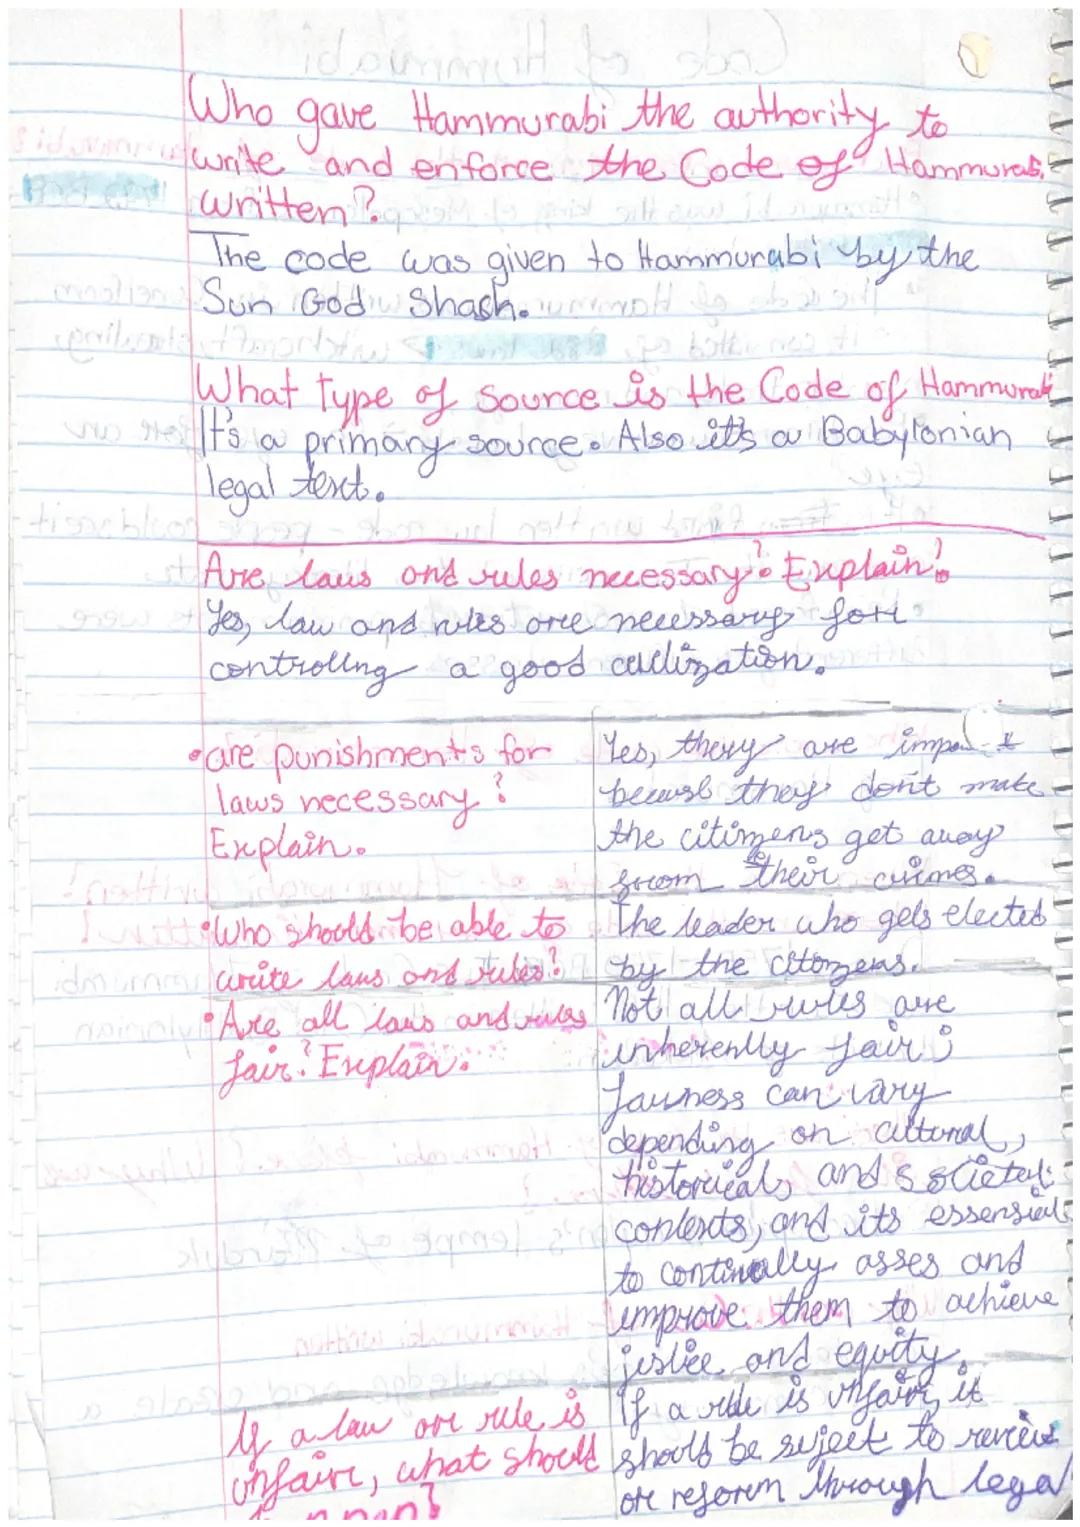 Who gave Hammurabi the authority to
write and enforce the Code of Hammurabi
written?
The code was given to Hammurabi by the
Sun God Shash.
What type of source is the Code of Hammurabi
It's a primary source. Also it's a Babylonian
legal text.
Are laws and rules necessary? Explain!
Yes, law and rules are necessary for
controling a good civilization.
• are punishments for
laws necessary?
Explain.
Yes, they are
because they don't make
the citizens get away
from their crimes.
• Who should be able to
write laws and rules?
The leader who gets elected
by the citizens.
• Are all laws and rules
fair? Explain.
Not all rules are
inherently fair;
fairness can vary
depending on cultural,
historical, and societal
contexts, and its essensial
to continually asses and
improve them to achieve
justice and equity.
If a law or rule is
unfair, what should
If a rule is unfair, it
should be suject to review
or reform through legal